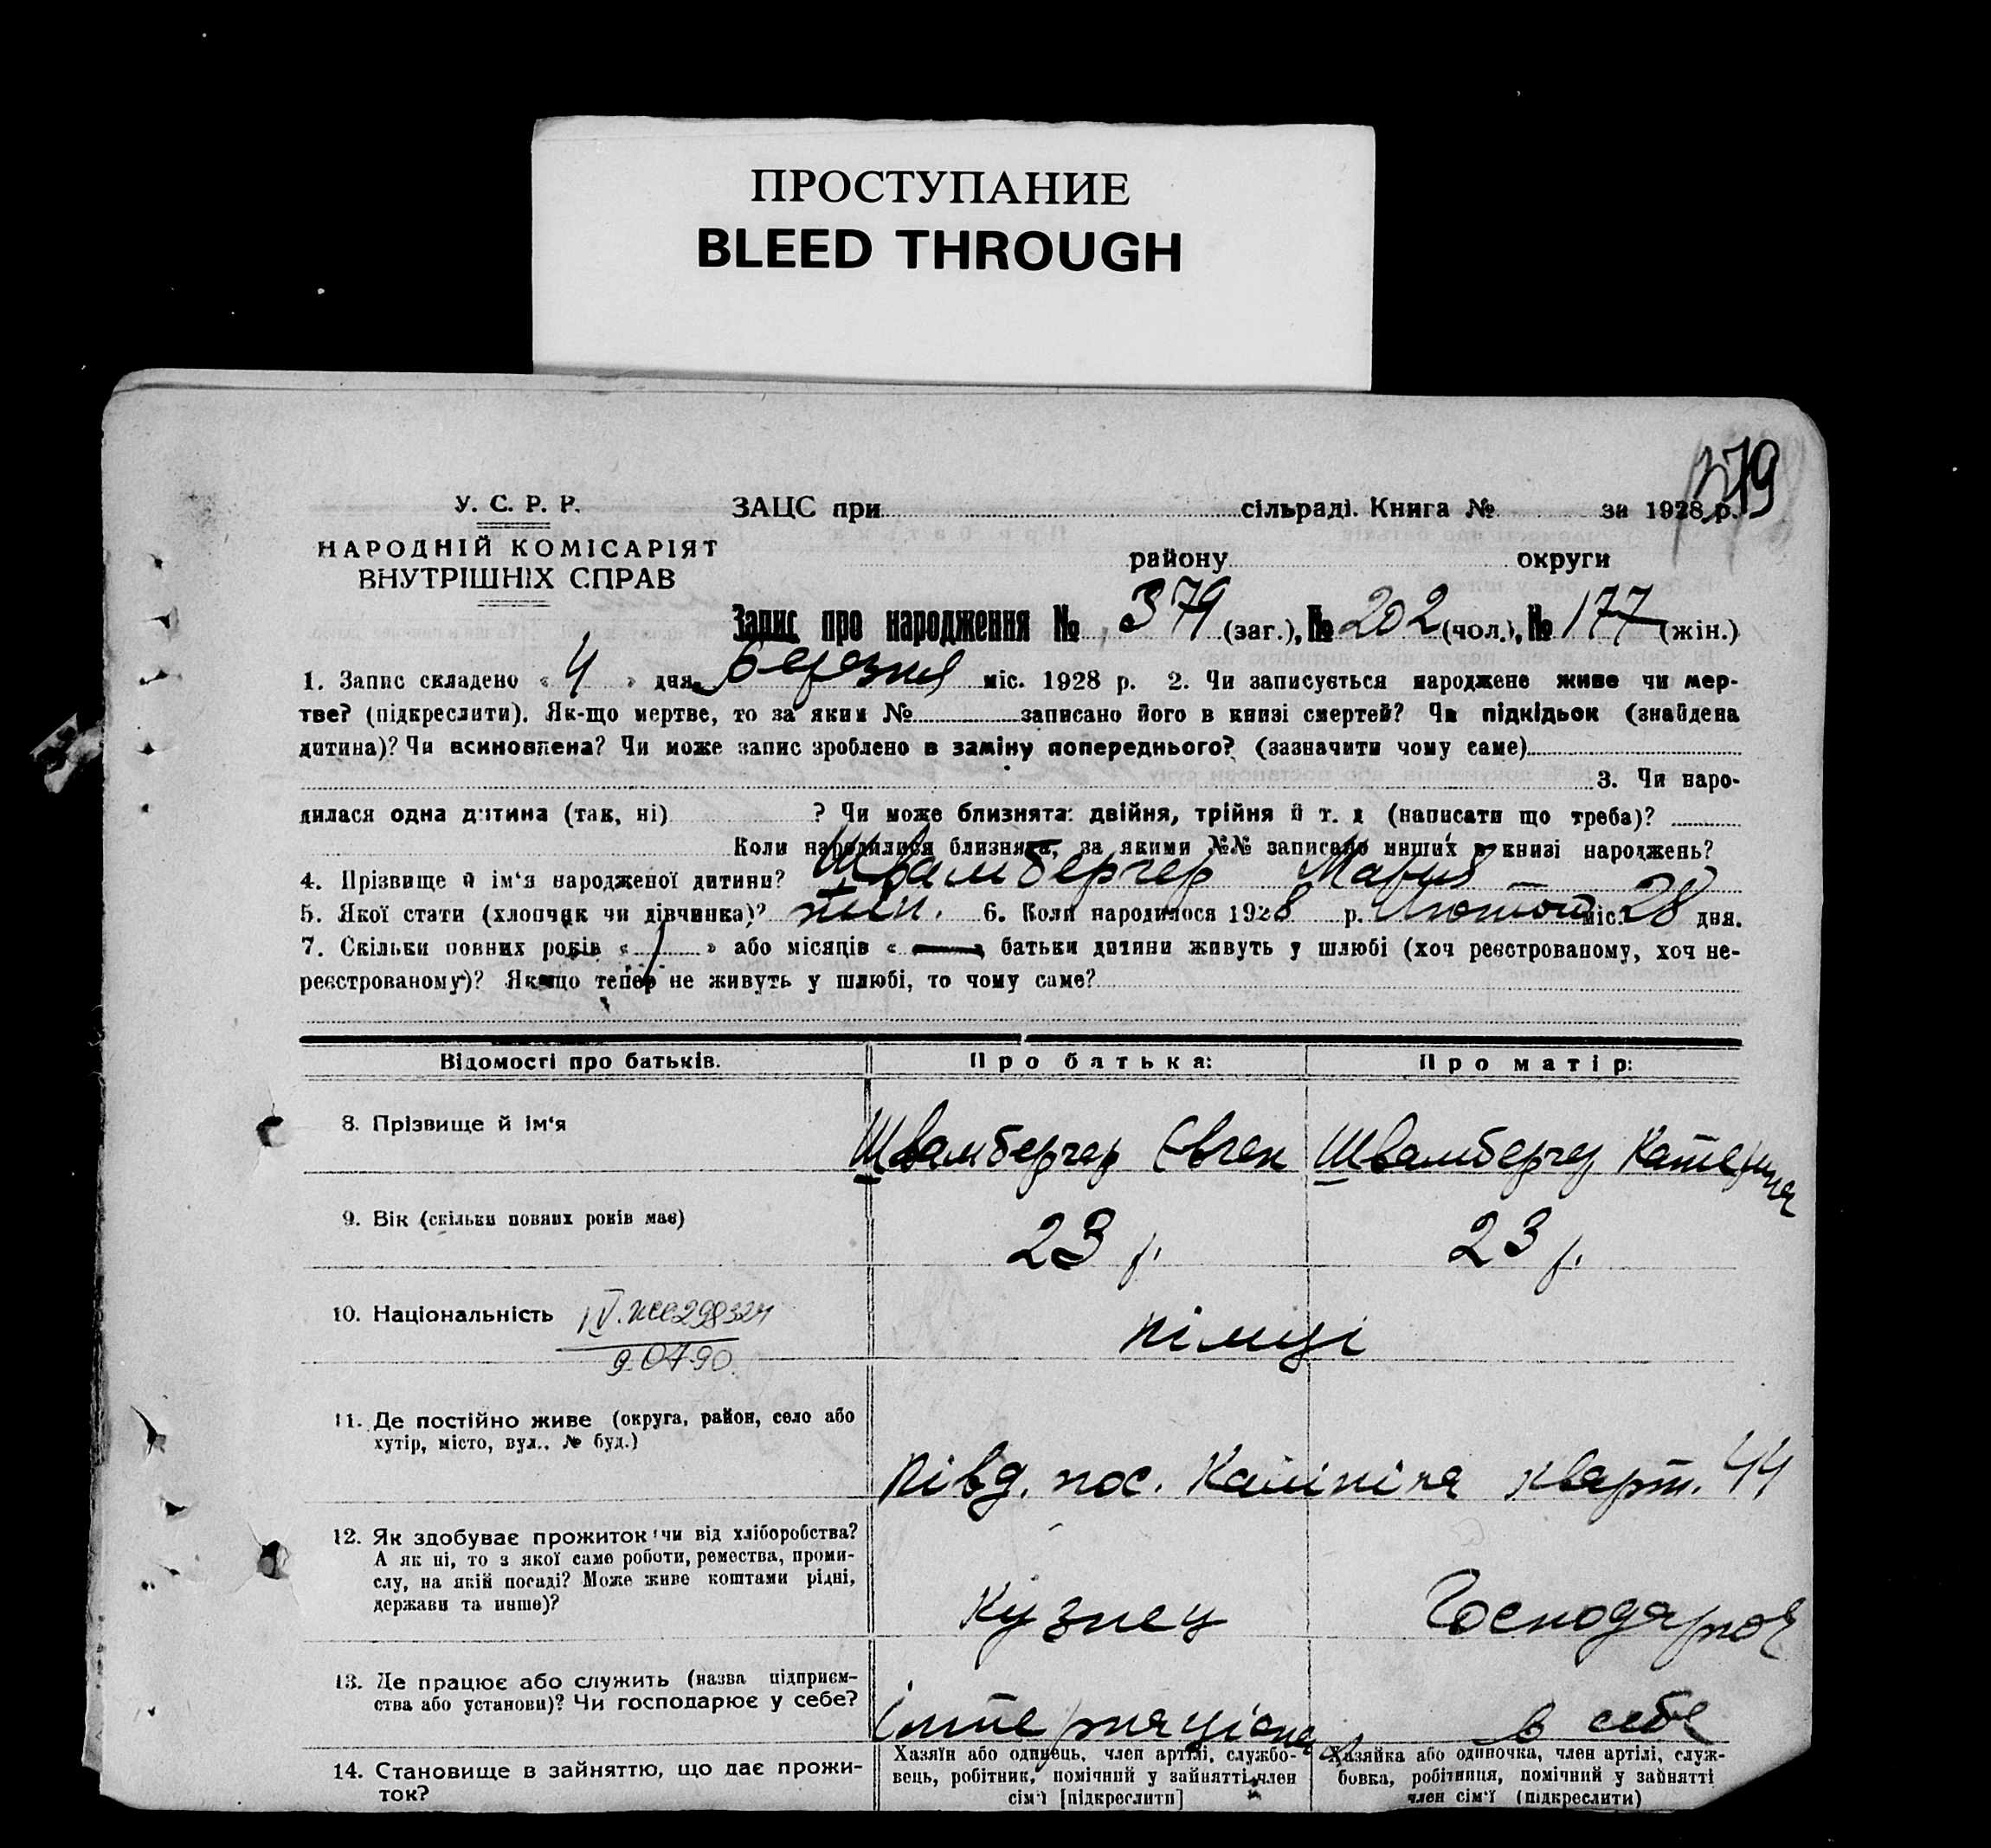 ПРОСТУПАНИЕ
BLEED THROUGH
379
У. С. Р. Р.
НАРОДНІЙ КОМІСАРІЯТ
ВНУТРІШНІХ СПРАВ
ЗАЦС при сільраді. Книга № за 1928 р.
району округи
Запис про народження № 379 (заг.), № 202 (чол.), № 177 (жін.)
1. Запис складено « 4 » дня березня міс. 1928 р. 2. Чи записується народжене живе чи мер-
тве? (підкреслити). Як-що мертве, то за яким № записано його в книзі смертей? Чи підкідьок (знайдена
дитина)? Чи всиновлена? Чи може запис зроблено в заміну попереднього? (зазначити чому саме)
3. Чи наро-
дилася одна дитина (так, ні) ? Чи може близнята: двійня, трійня й т. д (написати що треба)?
Коли народилися близнята, за якими №№ записано инших в книзі народжень?
4. Прізвище й ім‘я народженої дитини? Швамбергер Мария
5. Якої стати (хлопчик чи дівчинка)? жін. 6. Коли народилося 1928 р. Лютого міс. 28 дня.
7. Скільки повних років « 1 » або місяців « — » батьки дитини живуть у шлюбі (хоч реєстрованому, хоч не-
реєстрованому)? Якщо тепер не живуть у шлюбі, то чому саме?
Відомості про батьків. Про батька: Про матір:
8. Прізвище й ім‘я Швамбергер Євген Швамбергер Катерина
9. Вік (скільки повних років має) 23 р. 23 р.
10. Національність IV. ЖС 298324 німці
90790
11. Де постійно живе (округа, район, село або
хутір, місто, вул., № буд.)
Півд. пос. Калініна кварт. 44
12. Як здобуває прожиток (чи від хліборобства?
А як ні, то з якої саме роботи, ремества, проми-
слу, на якій посаді? Може живе коштами рідні,
держави та инше)?
Кузнец Господарка
13. Де працює або служить (назва підприєм-
ства або установи)? Чи господарює у себе?
Інтернаціонал в себе
14. Становище в зайняттю, що дає прожи-
ток?
Хазяїн або одинець, член артілі, службо-
вець, робітник, помічний у зайнятті член
сім‘ї [підкреслити]
Хазяйка або одиночка, член артілі, служ-
бовка, робітниця, помічний у зайнятті
член сім‘ї (підкреслити)